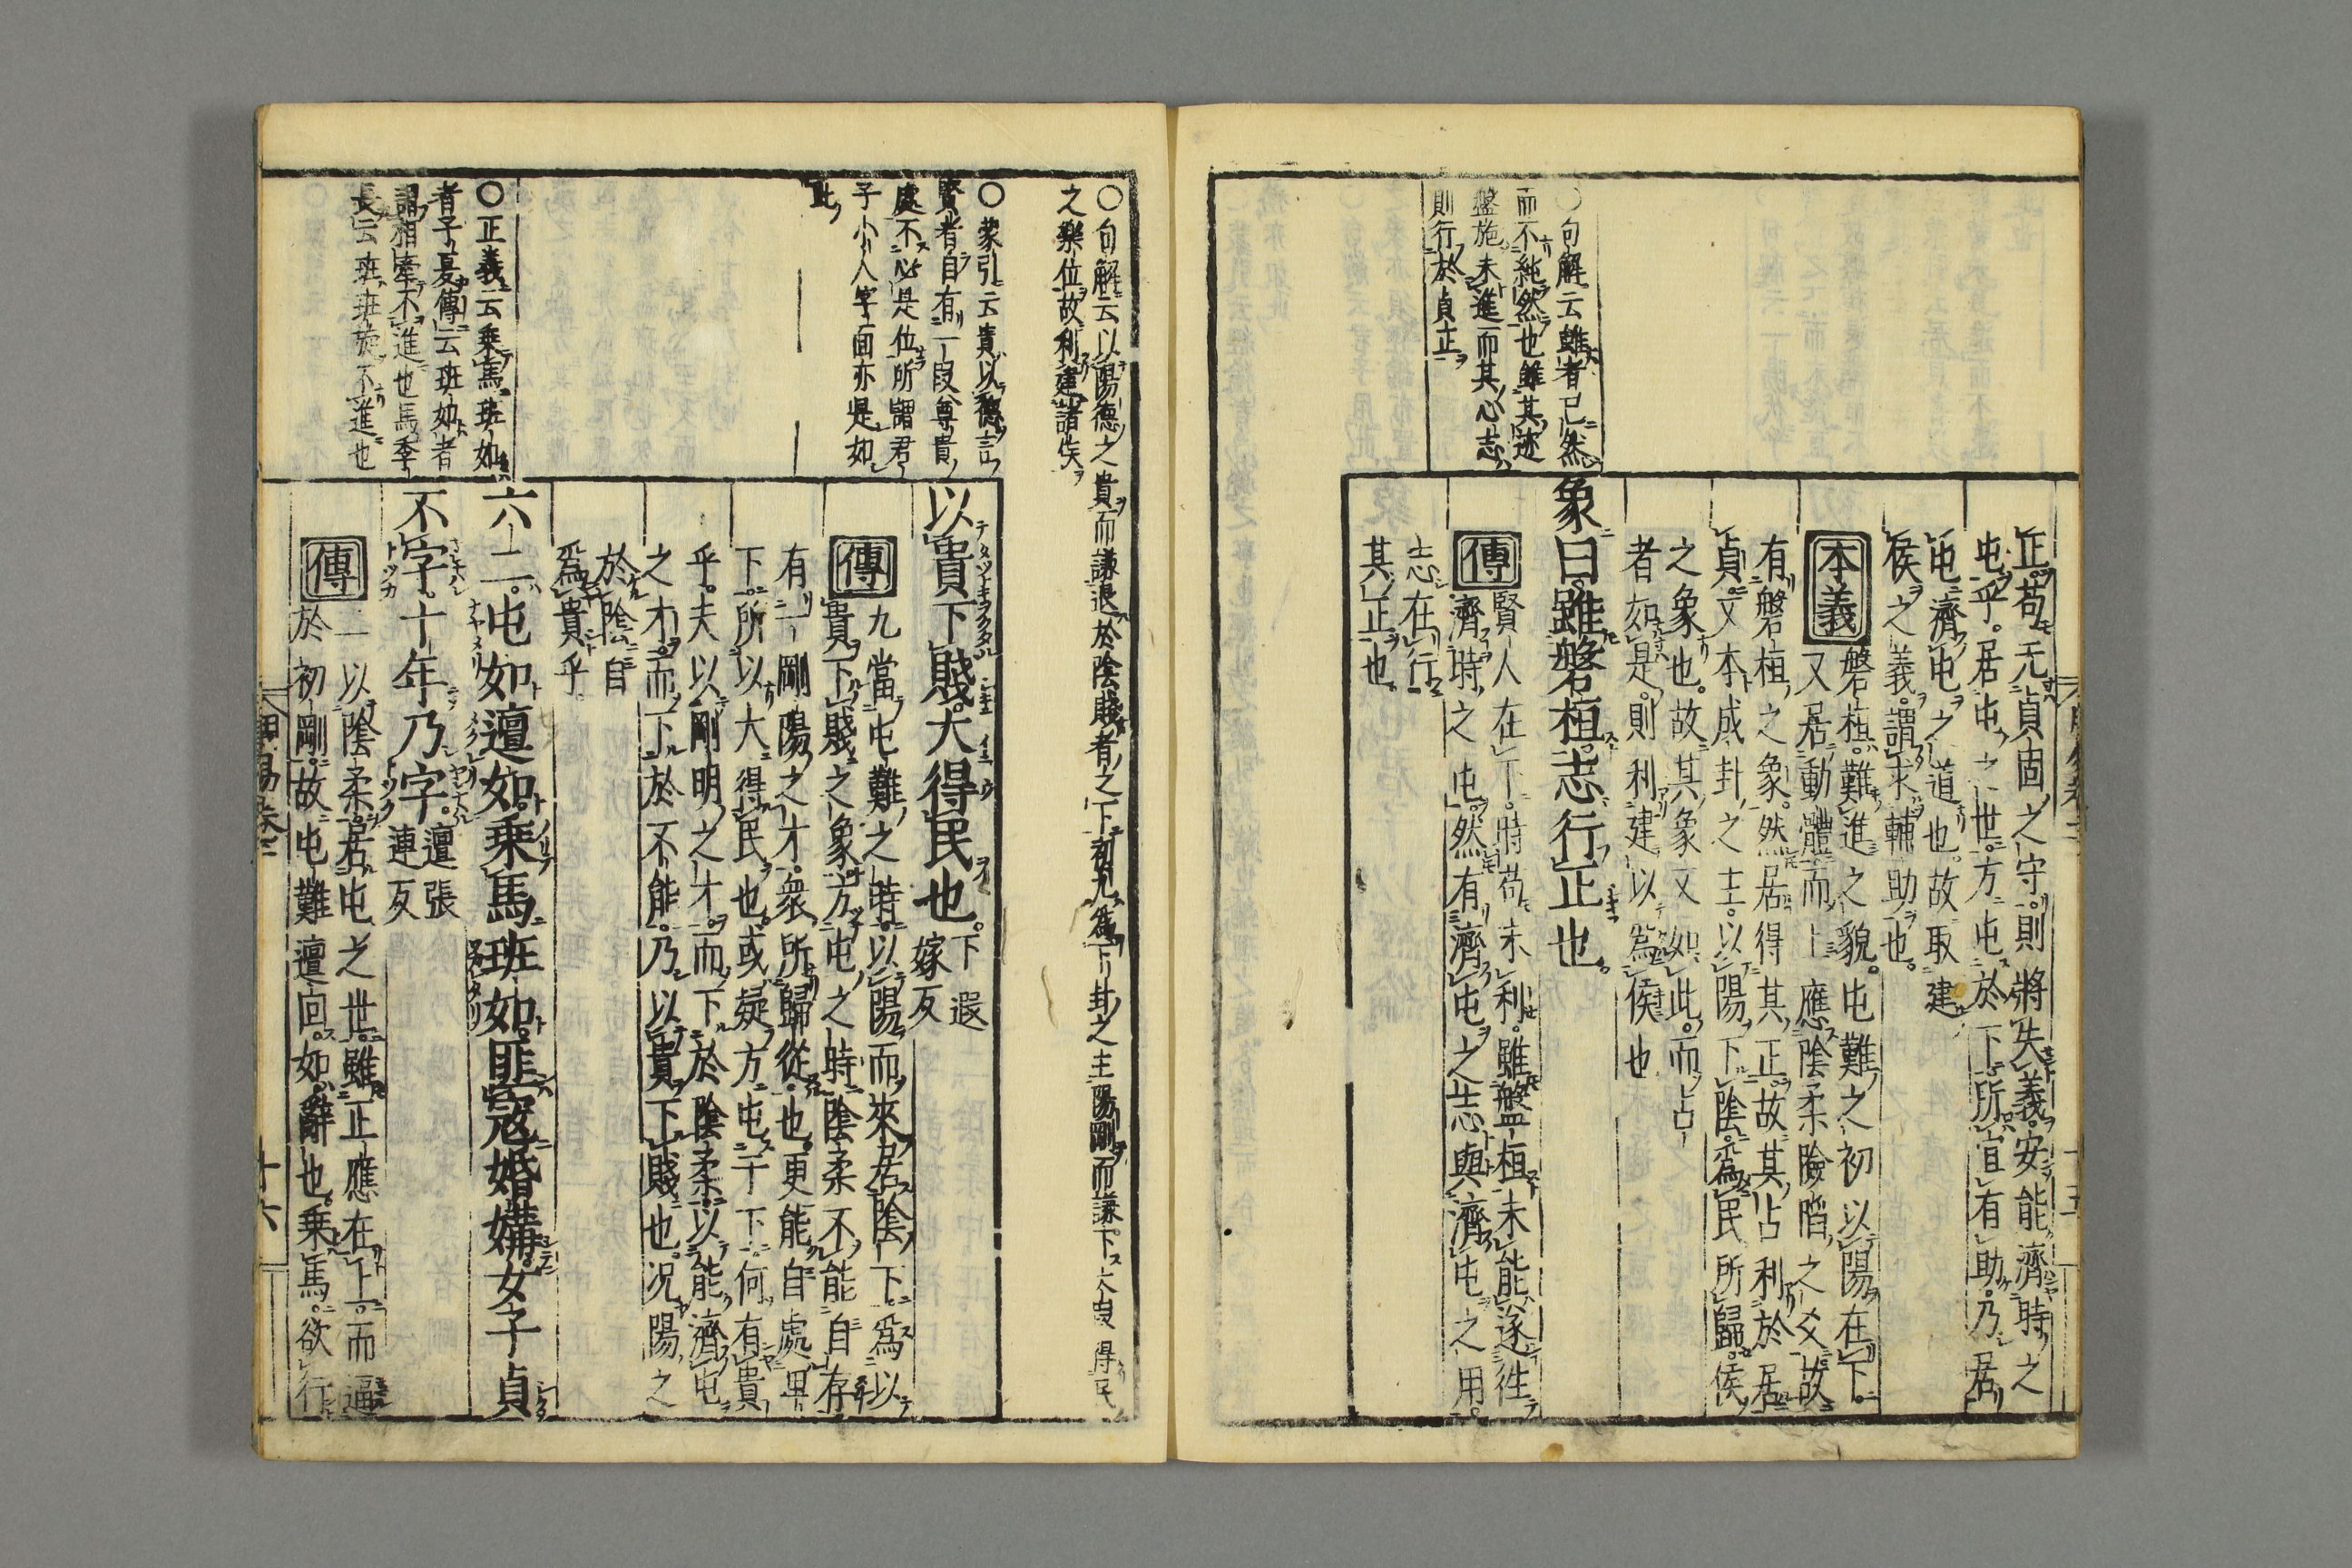 正苟无貞固之守則將失義安能濟時之
屯乎居屯之世方屯於下所宜有助乃居
屯濟屯之道也故取建
侯之義謂求輔助也
本義
磐桓難進之貌屯難之初以陽在下
又居動體而上應陰柔險陷之爻故
有磐桓之象然居得其正故其占利於居
貞又本成卦之主以陽下陰爲民所歸侯
之象也故其象又如此而占
者如是則利建以爲侯也
〇句解云雖者已然
而不純然也雖其迹
盤施未進而其心志
則行於貞正
象曰雖磐桓志行正也
傳
賢人在下時苟未利雖盤桓未能遂往
濟時之屯然有濟屯之志與濟屯之用
志在行
其正也
〇句解云以陽德之貴而謙退於陰賤者之下初九爲下卦之主陽剛而謙下大得民
之樂位故利建諸侯
〇蒙引云貴以德言
賢者自有一段尊貴
處不必是位所謂君
子小人字面亦是如
此
以貴下賤大得民也
下遐
嫁反
傳
九當屯難之時以陽而來居陰下爲以
貴下賤之象方屯之時陰柔不能自存
有一剛陽之才衆所歸從也更能自處卑
下所以大得民也或疑方屯于下何有貴
乎夫以剛明之才而下於陰柔以能濟屯
之才而下於不能乃以貴下賤也况陽之
於陰自
爲貴乎
〇正義云乘馬班如
者子夏傳云班如者
謂相牽不進也馬季
長云班班旋不進也
六二屯如邅如乘馬班如匪寇婚媾女子貞
不字十年乃字
邅張
連反
傳
二以陰柔居屯之世雖正應在上而逼
於初剛故屯難邅回如辭也乘馬欲行
十六